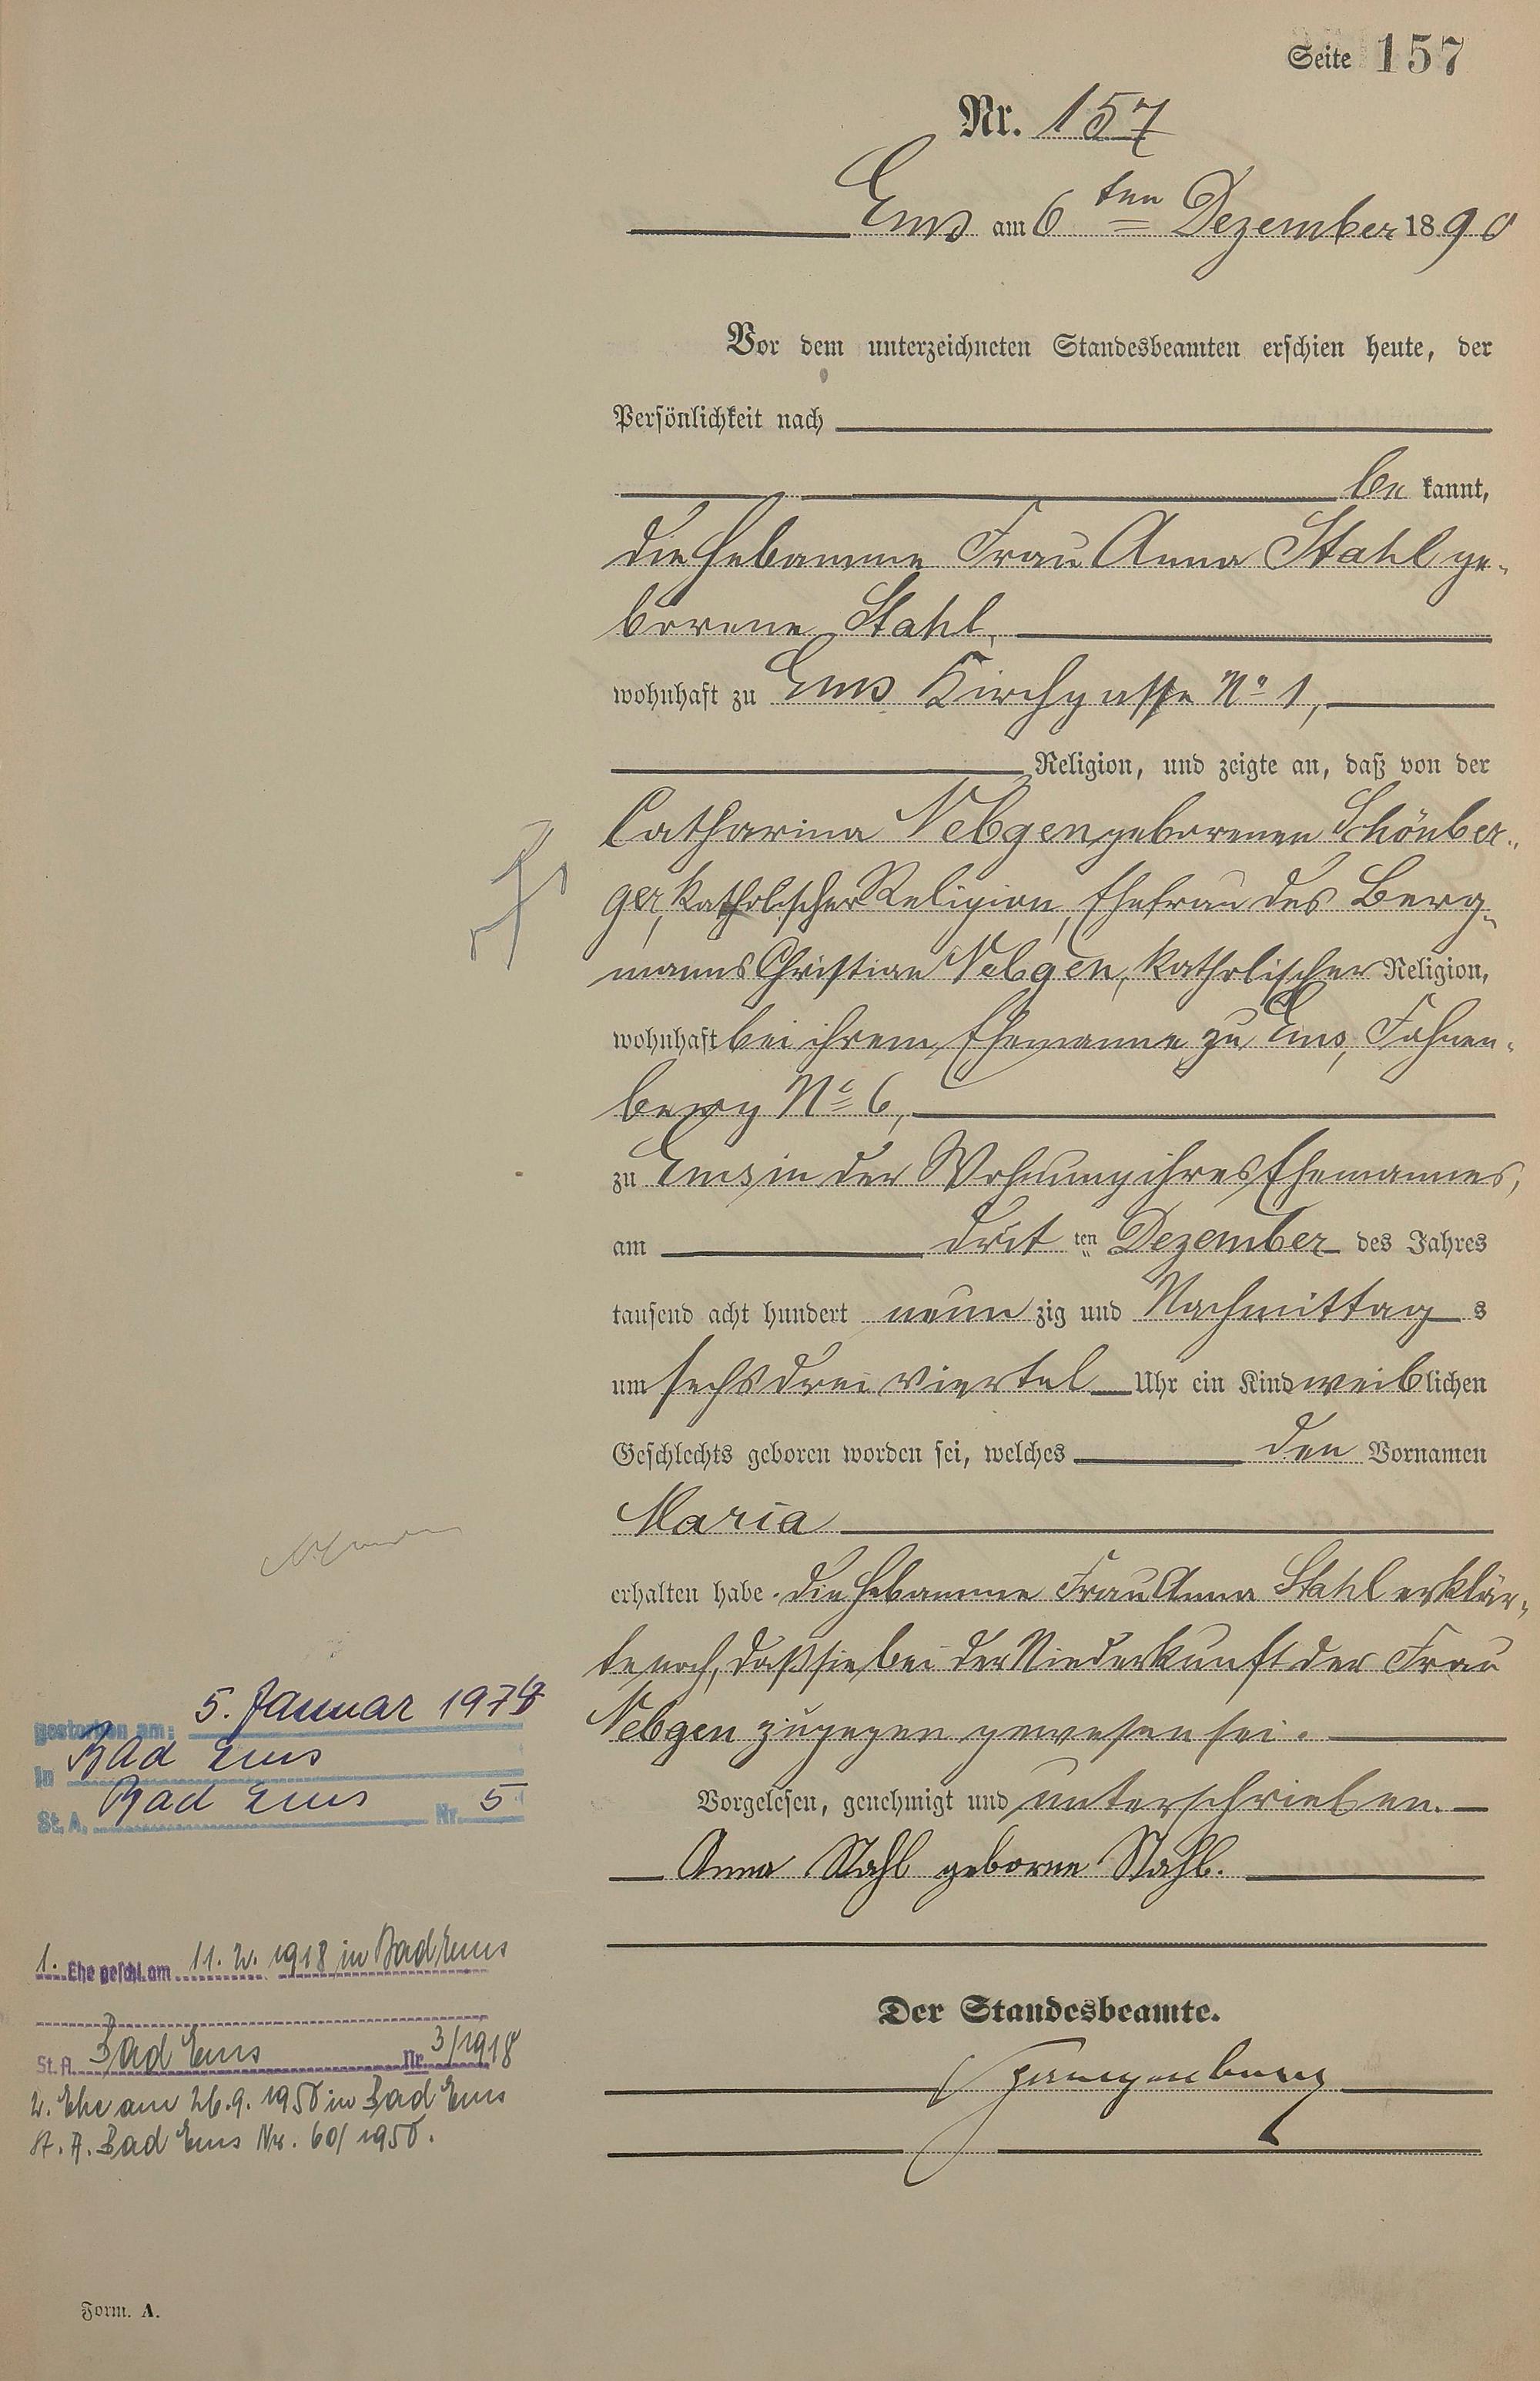 Seite 157
Nr. 157
Ems am 6ten Dezember 1890
Vor dem unterzeichneten Standesbeamten erschien heute, der
Persönlichkeit nach
be kannt,
die Hebamme Frau Anna Stahl ge-
borene Stahl,
wohnhaft zu Ems Kirchgasse No 1,
Religion, und zeigte an, daß von der
Catharina Nebgen geborenen Schönber-
ger, katholischer Religion, Ehefrau des Berg-
manns Christian Nebgen, katholischer Religion,
wohnhaft bei ihrem Ehemanne zu Ems, Fahnen-
berg No 6,
zu Ems in der Wohnung ihres Ehemannes,
am drit ten Dezember des Jahres
tausend acht hundert neun zig und Nachmittag s
um sechs drei viertel Uhr ein Kind weiblichen
Geschlechts geboren worden sei, welches den Vornamen
Maria
erhalten habe. Die Hebamme Frau Anna Stahl erklär-
te noch, daß sie bei der Niederkunft der Frau
Nebgen zugegen gewesen sei.
Vorgelesen, genehmigt und unterschrieben.
Anna Stahl geborne Stahl.
Der Standesbeamte.
Spangenberg
gestorben am: 5. Januar 1974
in Bad Ems
St. A. Bad Ems Nr. 5
1. Ehe geschl. am 11. 2. 1918 in Bad Ems
St. A. Bad Ems Nr. 3/1918
2. Ehe am 26. 9. 1950 in Bad Ems
St. A. Bad Ems Nr. 60/1950.
Form. A.